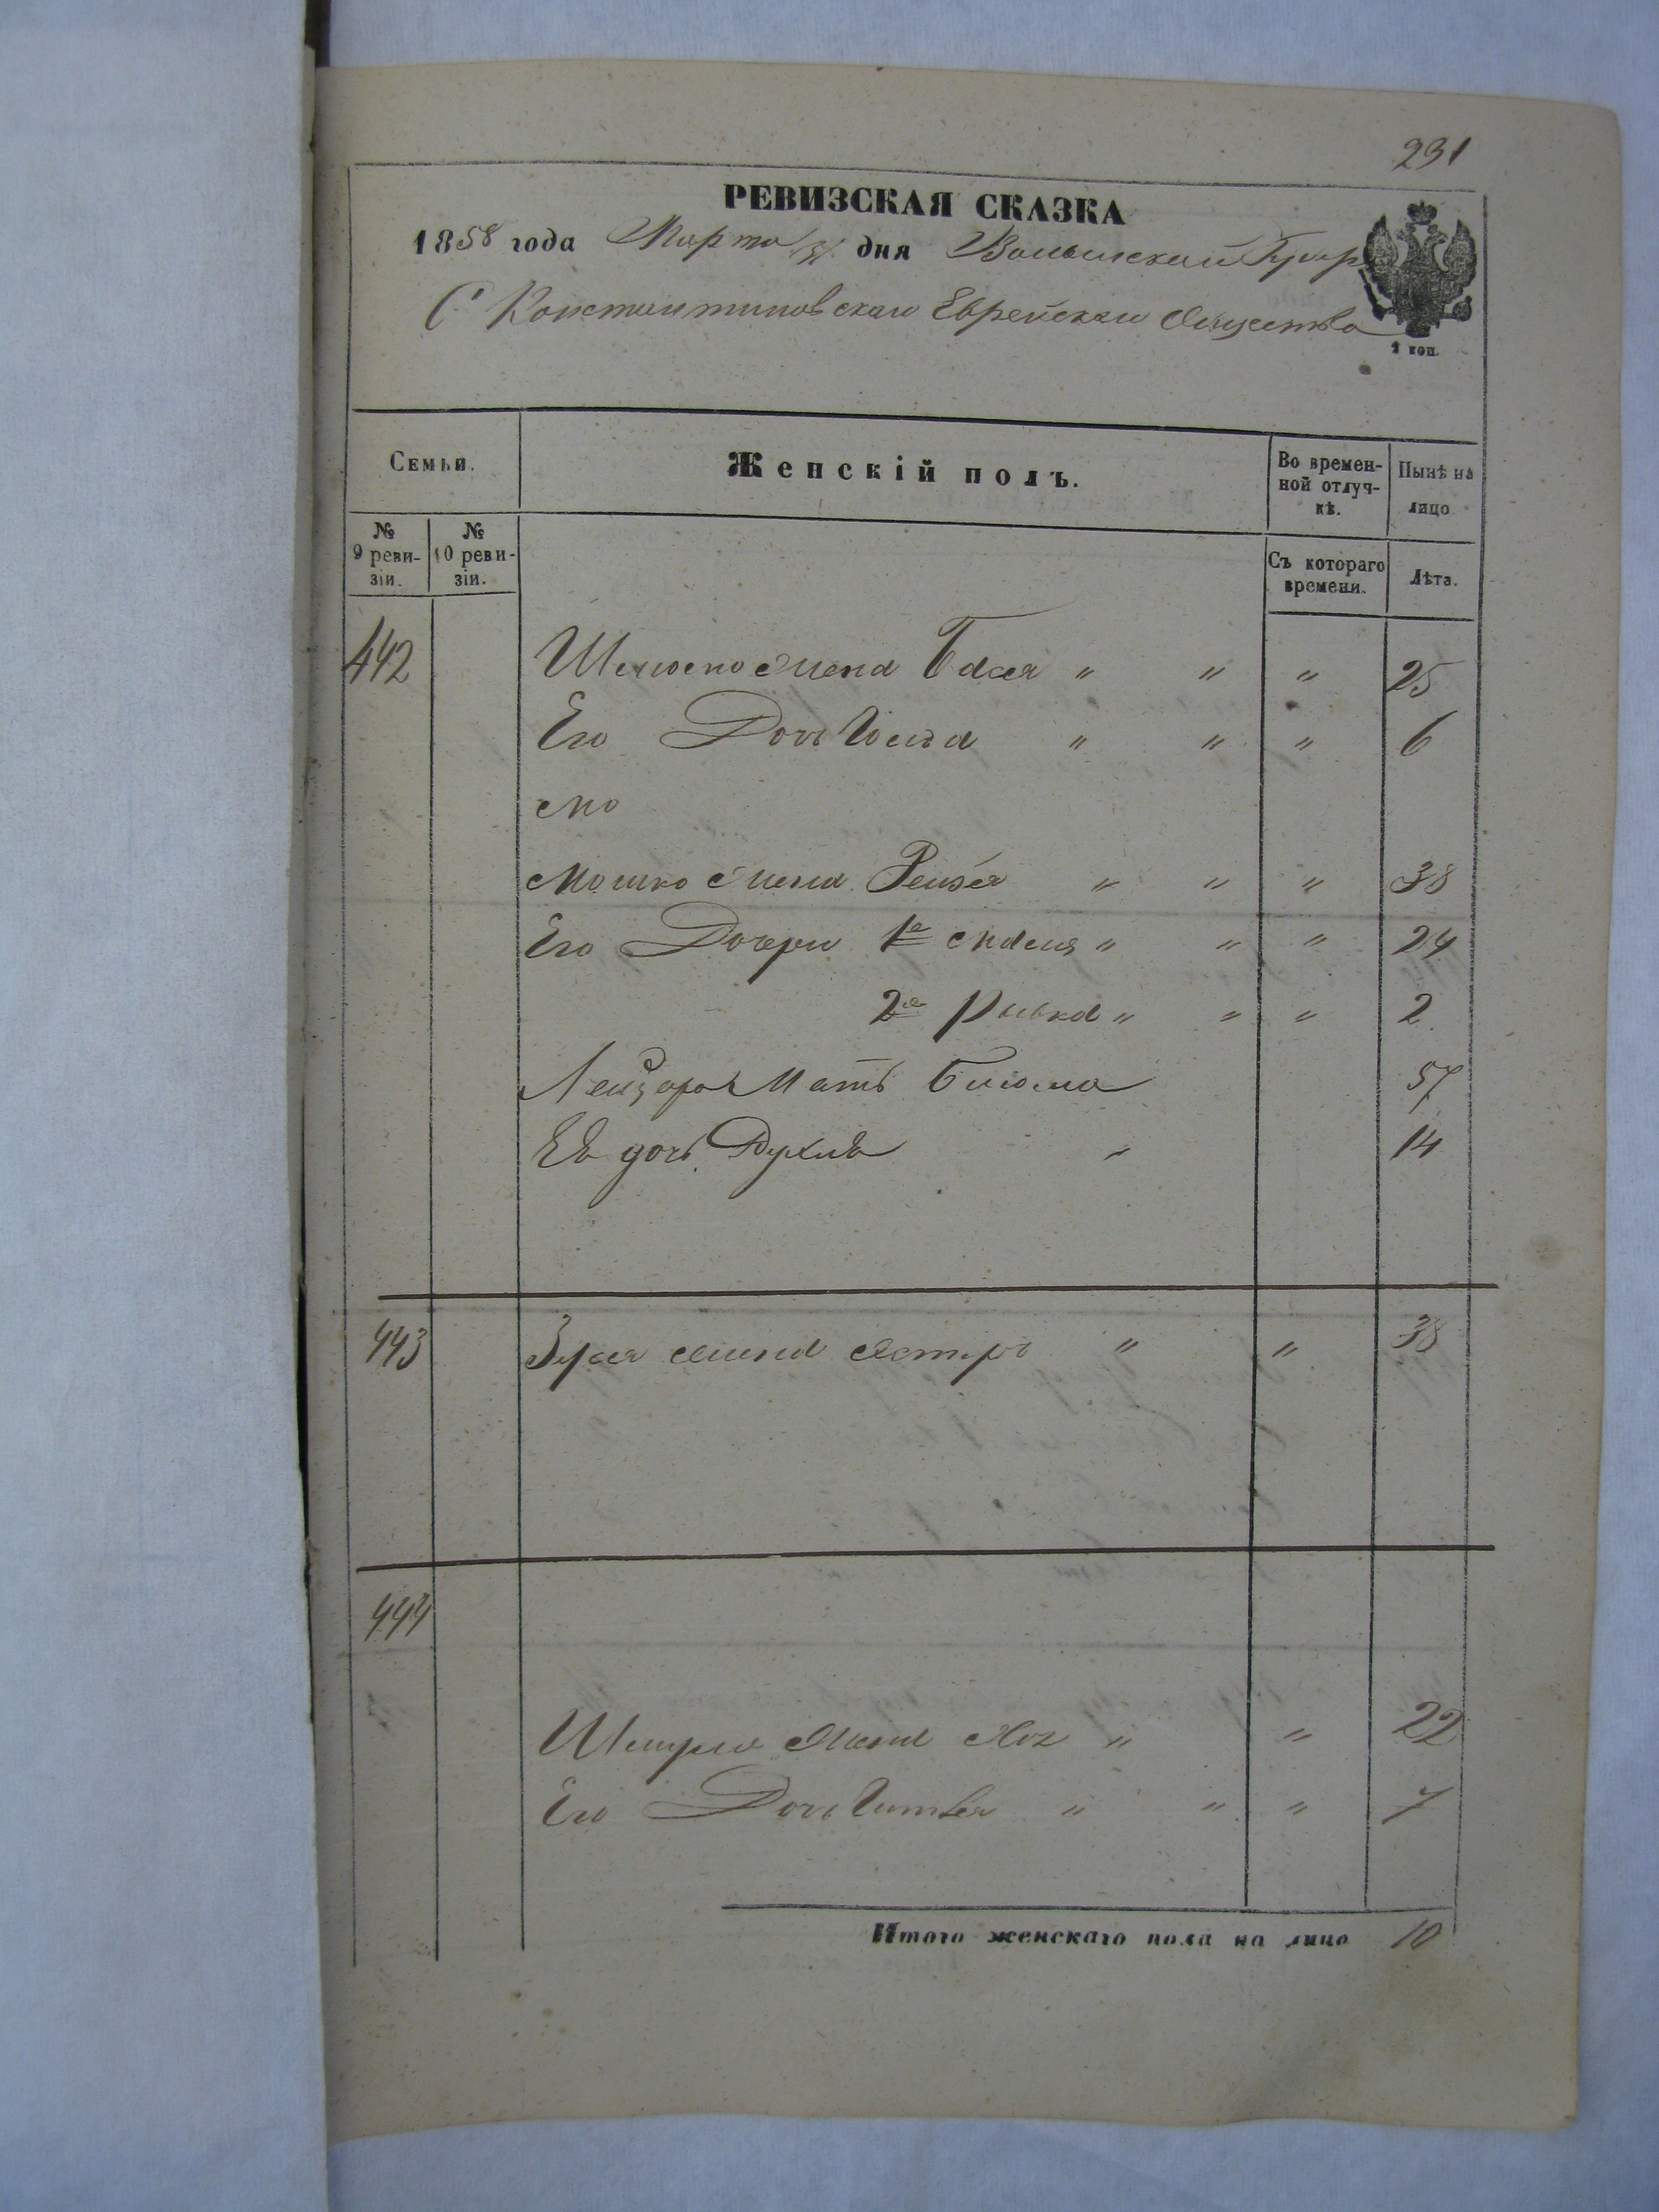 231
РЕВИЗСКАЯ СКАЗКА
1858 года Марта дня Волынской Губер
С Константиновскаго Еврейскаго Общества
2 коп.
Семьи. Женскій полъ. Во времен-ной отлуч-кѣ. Нынѣ на лицо
№ 9 реви-зіи. № 10 реви-зіи. Съ котораго времени. Лѣта.
442 жена Бася " " " 25
Его Дочь " " " 6
Мо
Мошко жена Рейзя " " " 38
Его Дочери 1я " " " 24
2я Ривка " " " 2
Лейзора Мать 57
Ея дочь Рухля " 14
443 Зуся жена Эстеръ " " 38
444
жена Хая " " 22
Его Дочь " " " 7
Итого женскаго пола на лицо 10